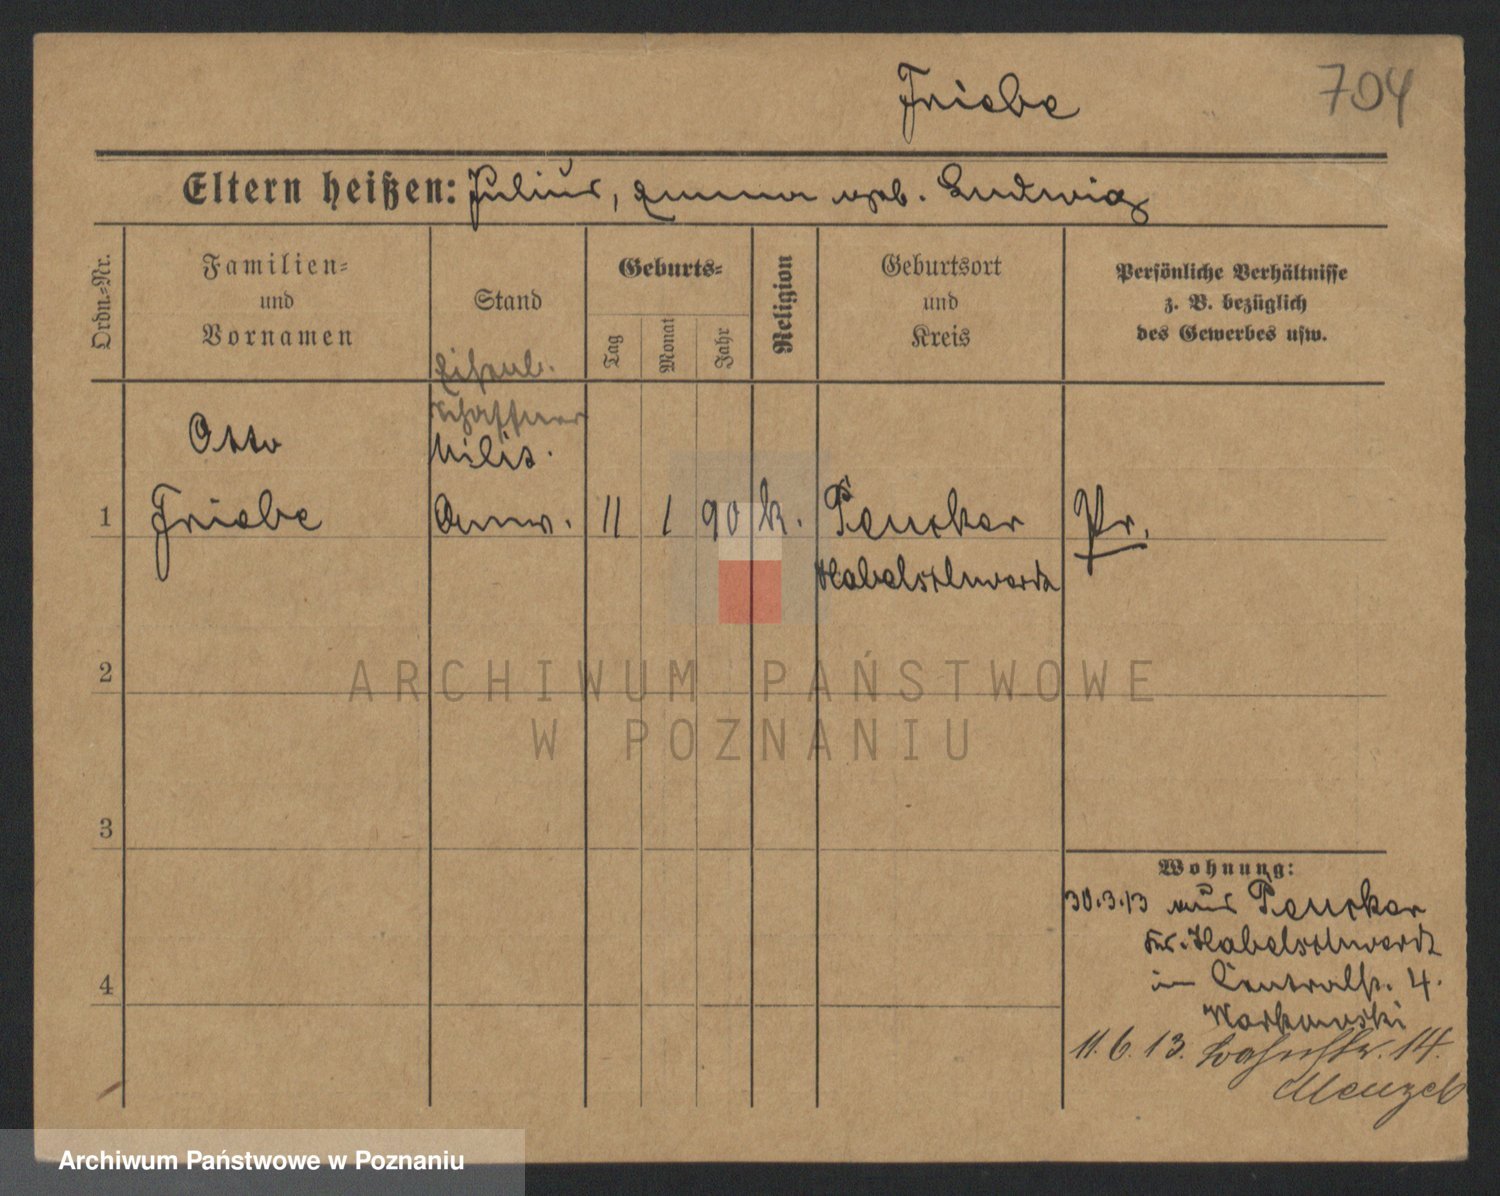 Friebe
704
Eltern heißen: Julius, Emma geb. Ludwig
Ordn.-Nr.
Familien-
und
Vornamen
Stand
Geburts-
Tag
Monat
Jahr
Religion
Geburtsort
und
Kreis
Persönliche Verhältnisse
z. B. bezüglich
des Gewerbes usw.
Eisenb.
Schaffner
Otto
Milit.
1 Friebe Anw. 11 1 90 k. Peucker Pr.
Habelschwerdt
2
3
4
Wohnung:
30.3.13 aus Peucker
Kr. Habelschwerdt
in Centralstr. 4.
Markowski
11.6.13. Bahnstr. 14.
Menzel
ARCHIWUM PAŃSTWOWE
W POZNANIU
Archiwum Państwowe w Poznaniu